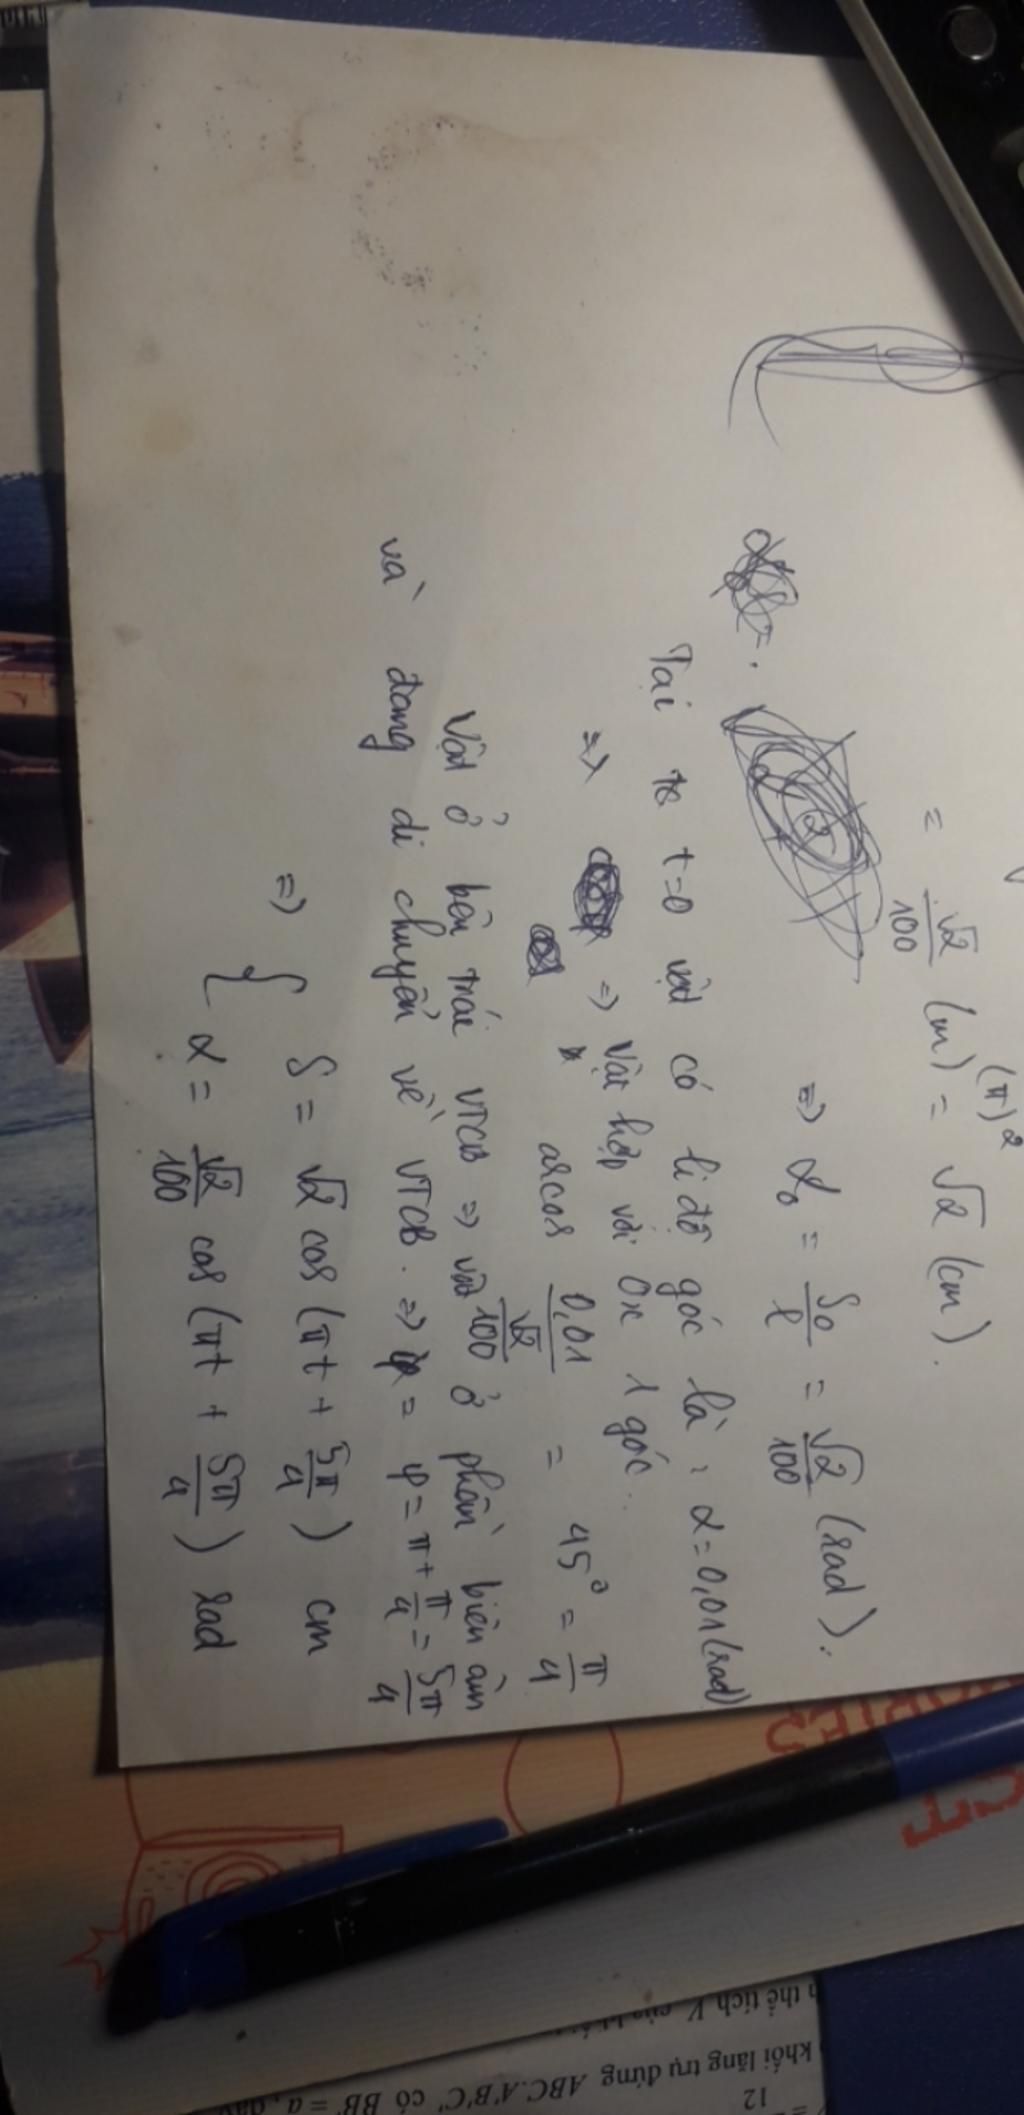 (π)²
= √2/100 (m) = √2 (cm).
=> α₀ = S₀/l = √2/100 (rad).
Tại t=0 vật có li độ góc là: α = 0,01 (rad)
=> => Vật hợp với Ox 1 góc:
arcos 0,01/(√2/100) = 45° = π/4
Vật ở bên trái VTCB => vật ở phần biên âm
và đang di chuyển về VTCB. => φ = π + π/4 = 5π/4
=> { S = √2 cos (πt + 5π/4) cm
α = √2/100 cos (πt + 5π/4) rad
thể tích V của khối
khối lăng trụ đứng ABC.A'B'C' có BB' = a, đáy
12